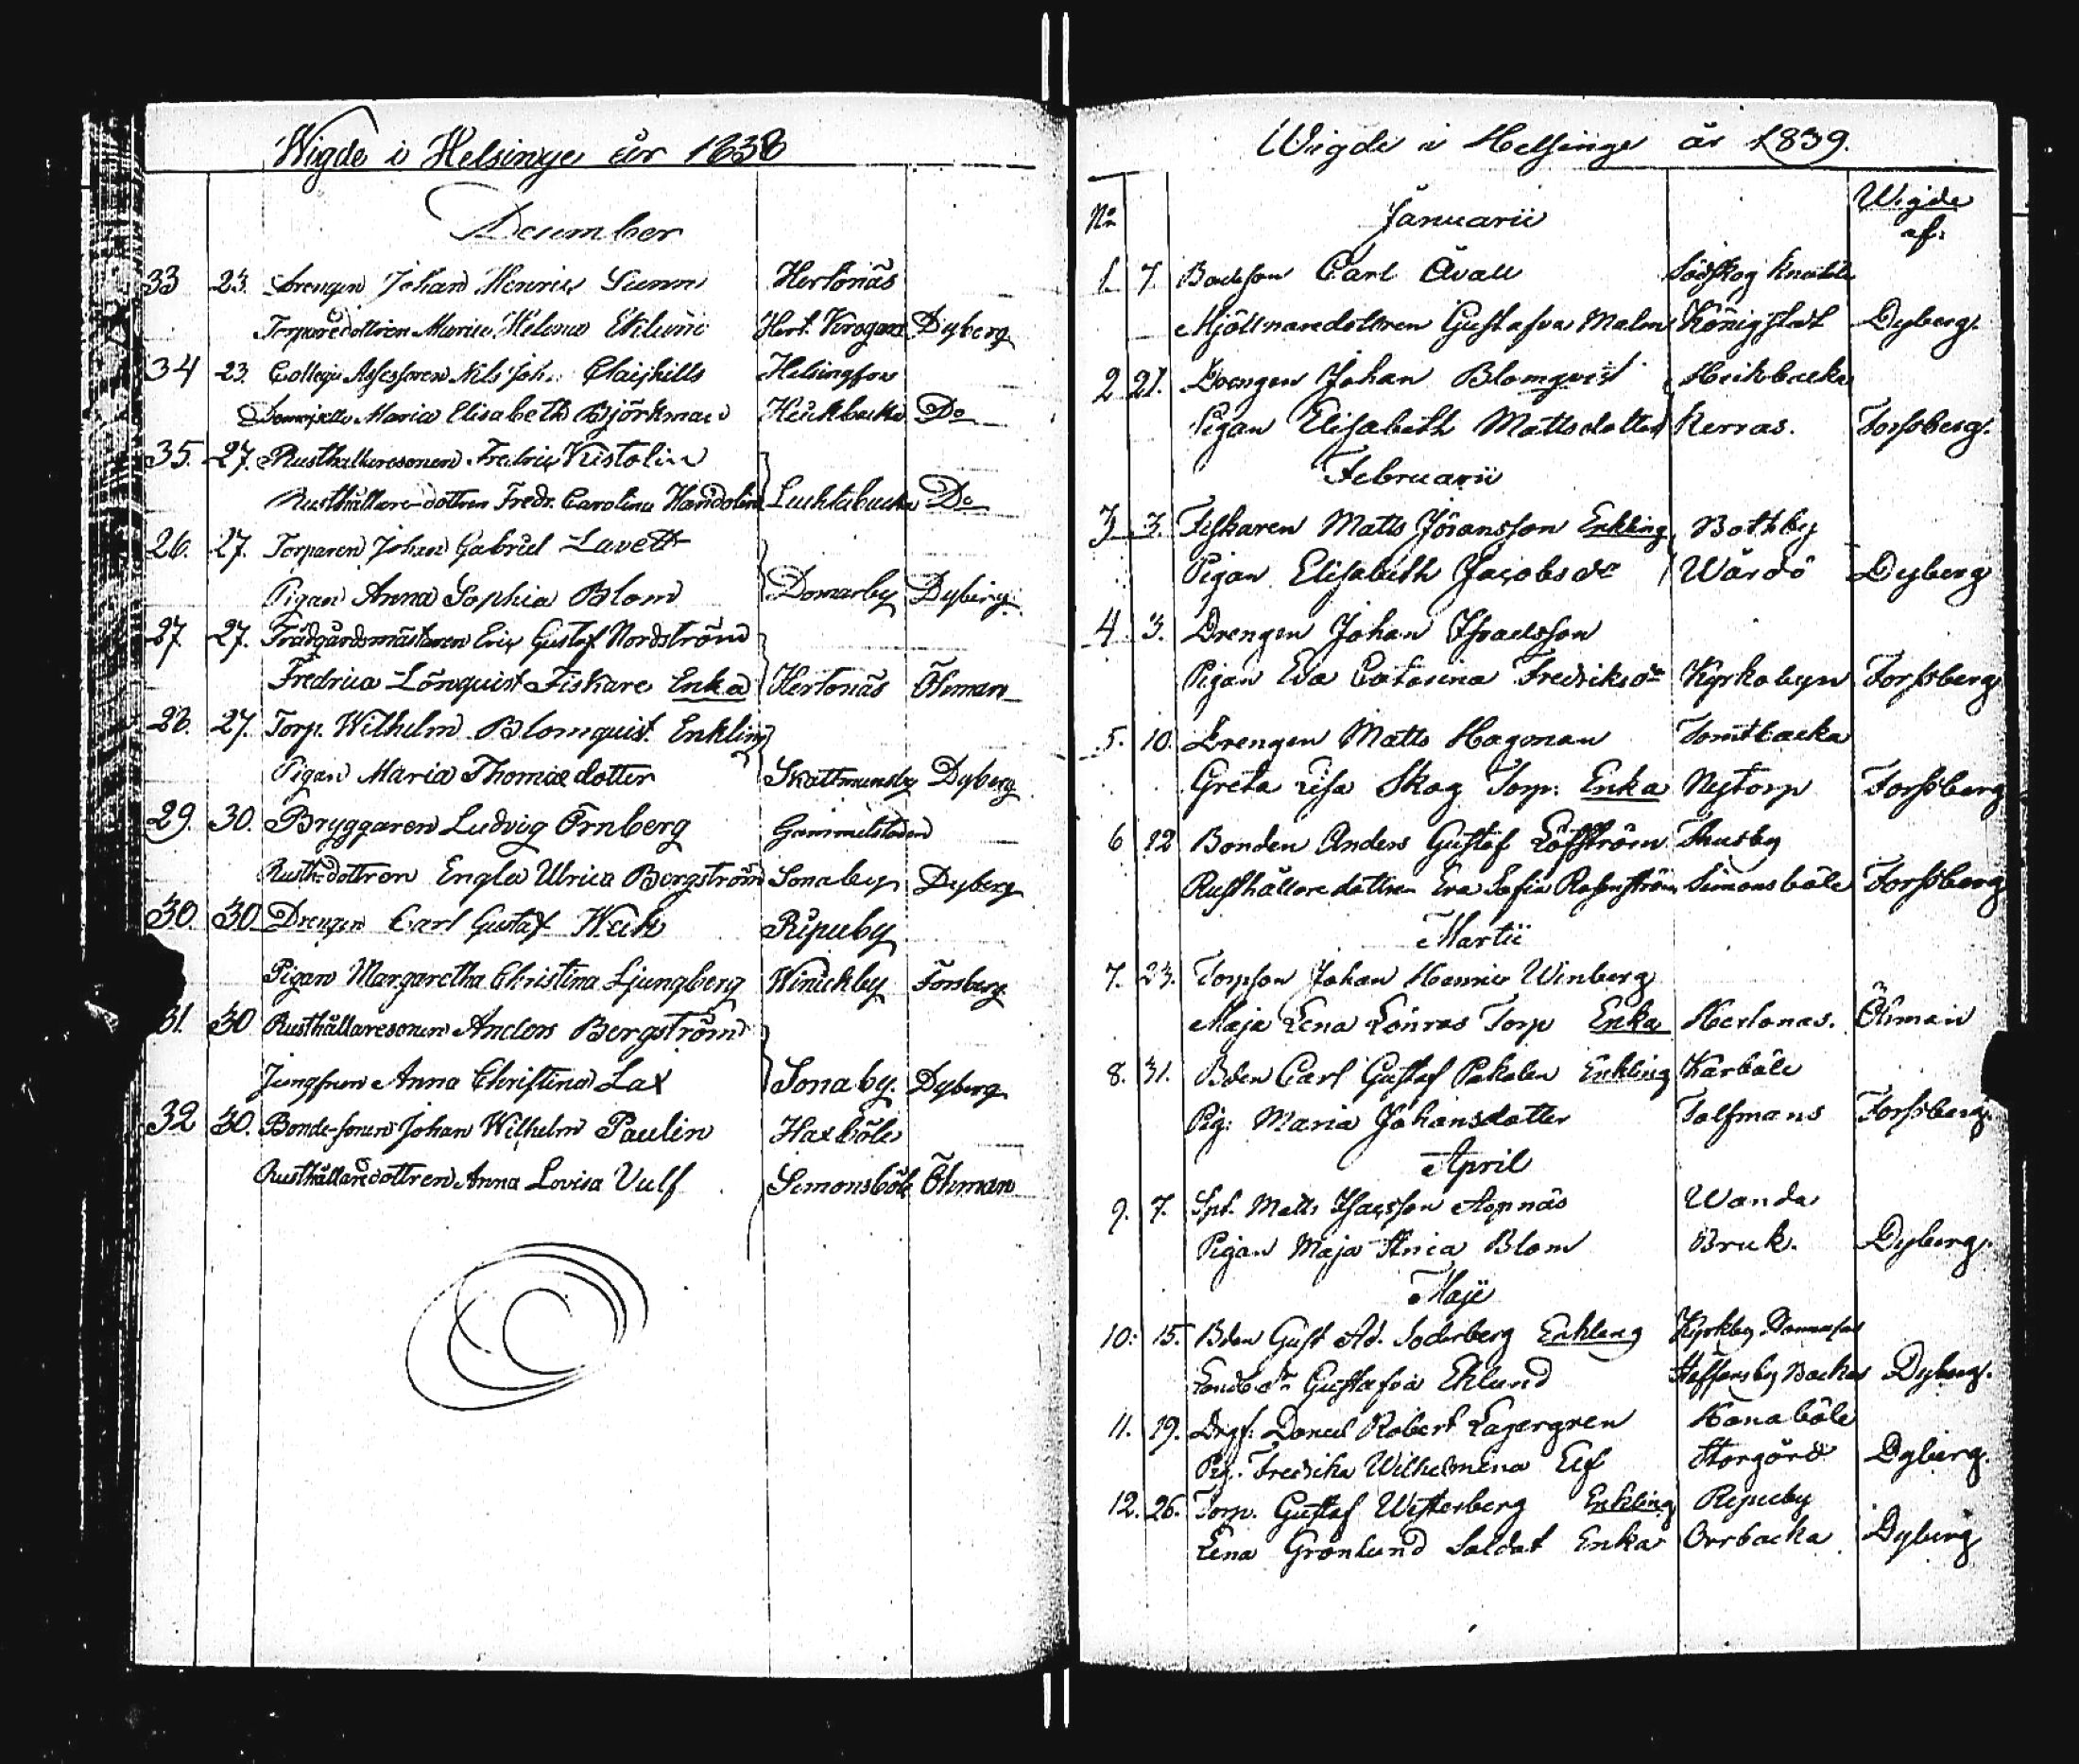 Wigde i Helsinge år 1838
December
33 23. Drengen Johan Henric Sunn Hertonäs
Torparedottren Maria Helena Eklund Hert. Krogara Dyberg
34 23. Collegii Assessoren Nils Joh. Claijhills Helsingfors
Maria Elisabeth Björkman Heickbacka Do
35. 27. Rusthållaresonen Fredric Kistolin
Rusthållare-dottren Fredr. Carolina Handolin Do
26. 27. Torparen Johan Gabriel Lavett
Pigan Anna Sophia Blom Domarby Dyberg.
27. 27. Trädgårdsmästaren Eric Gustaf Nordström
Fredrica Lönquist Fiskare Enka Hertonäs Öhman
28. 27. Torp. Wilhelm Blomquist Enkling
Pigan Maria Thomædotter Skattmansby Dyberg
29. 30. Bryggaren Ludvig Örnberg Gammelstaden
Rusth:dottren Engla Ulrica Bergström Sonaby Dyberg
30. 30 Drengen Carl Gustaf Weik Ripuby
Pigan Margaretha Christina Ljungberg Winickby Forsberg
31. 30 Rusthållaresonen Anders Bergström
Jungfrun Anna Christina Lax Sonaby. Dyberg
32 30. Bonde-sonen Johan Wilhelm Paulin Haxböle
Rusthållaredottren Anna Lovisa Vulf Simonsböle Öhman
Wigde i Helsinge år 1839.
No Januarii Wigde af:
1. 7. Carl Åvall
Mjöllnaredottren Gustafva Malm Königstedt Dyberg.
2 27. Drengen Johan Blomqvist Heikbacka
Pigan Elisabeth Mattsdotter Kerras. Forssberg.
Februarii
3 3. Fiskaren Matts Jöransson Enkling Botby
Pigan Elisabeth Jacobsdr Wårdö Dyberg
4. 3. Drengen Johan Israelsson
Pigan Eva Catarina Fredriksdr Kyrkobyn Forssberg
5. 10. Drengen Matts Hagonan Tomtbacka
Greta Lisa Skog Torp. Enka Nytorp Forssberg
6 12 Bonden Anders Gustaf Löfström Thusby
Rusthållaredottren Eva Sofia Rosenström Simonsböle Forssberg
Martii
7. 23. Torpson Johan Henric Winberg
Maja Lena Lönros Torp Enka Hertonas. Öhman
8. 31. Bden Carl Gustaf Pakalen Enkling Kårböle
Pig: Maria Johansdotter Tolfmans Forssberg.
April
9. 7. Matts Isacsson Aspnäs Wanda
Pigan Maja Stina Blom Bruk. Dyberg.
Maji
10: 15. Bden Gust Ad. Soderberg Enkling Kyrkby
Gustafva Eklund Staffansby Backas Dyberg.
11. 19. Daniel Robert Lagergren Hanaböle
Pig. Fredrika Wilhelmina Elf Storgård Dyberg.
12. 26. Torp. Gustaf Westerberg Enkling Ripuby
Lena Gronlund Soldat Enka Orrbacka Dyberg